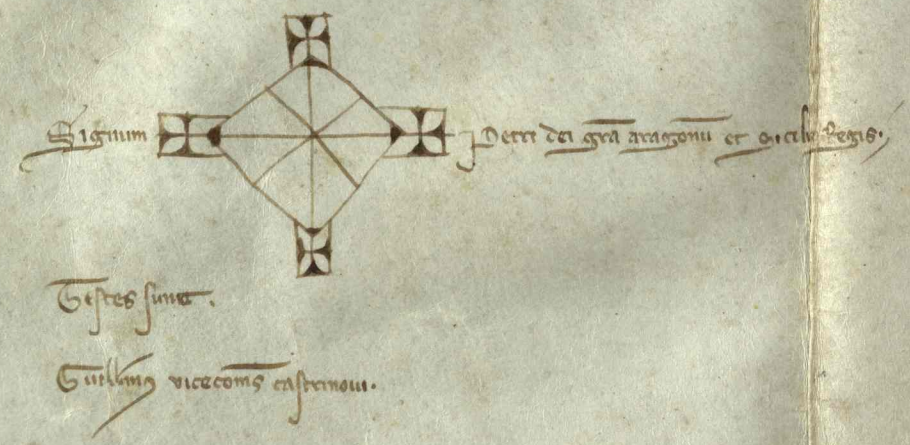 Signum Petri dei gr̄a aragonū et Sicilie Regis.
Testes sunt.
Guill̄mus vicecom̄s castrinovi.